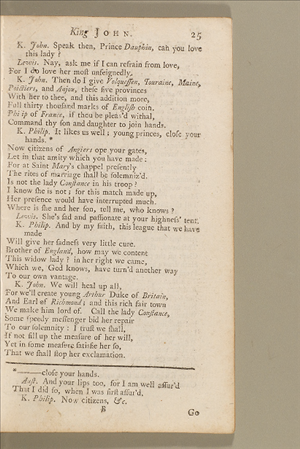 King JOHN. 25
K. John. Speak then, Prince Dauphin, can you love
this lady?
Lewis. Nay, ask me if I can refrain from love,
For I do love her most unfeignedly.
K. John. Then do I give Volquessen, Touraine, Maine,
Poictiers, and Anjou, these five provinces
With her to thee, and this addition more,
Full thirty thousand marks of English coin.
Philip of France, if thou be pleas'd withal,
Command thy son and daughter to join hands.
K. Philip. It likes us well; young princes, close your
hands. *
Now citizens of Angiers ope your gates,
Let in that amity which you have made:
For at Saint Mary's chappel presently
The rites of marriage shall be solemniz'd.
Is not the lady Constance in this troop?
I know she is not; for this match made up,
Her presence would have interrupted much.
Where is she and her son, tell me, who knows?
Lewis. She's sad and passionate at your highness' tent.
K. Philip. And by my faith, this league that we have
made
Will give her sadness very little cure.
Brother of England, how may we content
This widow lady? in her right we came,
Which we, God knows, have turn'd another way
To our own vantage.
K. John. We will heal up all,
For we'll create young Arthur Duke of Britain,
And Earl of Richmond; and this rich fair town
We make him lord of. Call the lady Constance,
Some speedy messenger bid her repair
To our solemnity: I trust we shall,
If not fill up the measure of her will,
Yet in some measure satisfie her so,
That we shall stop her exclamation.
*——close your hands.
Aust. And your lips too, for I am well assur'd
That I did so, when I was first assur'd.
K. Philip. Now citizens, &c.
B
Go